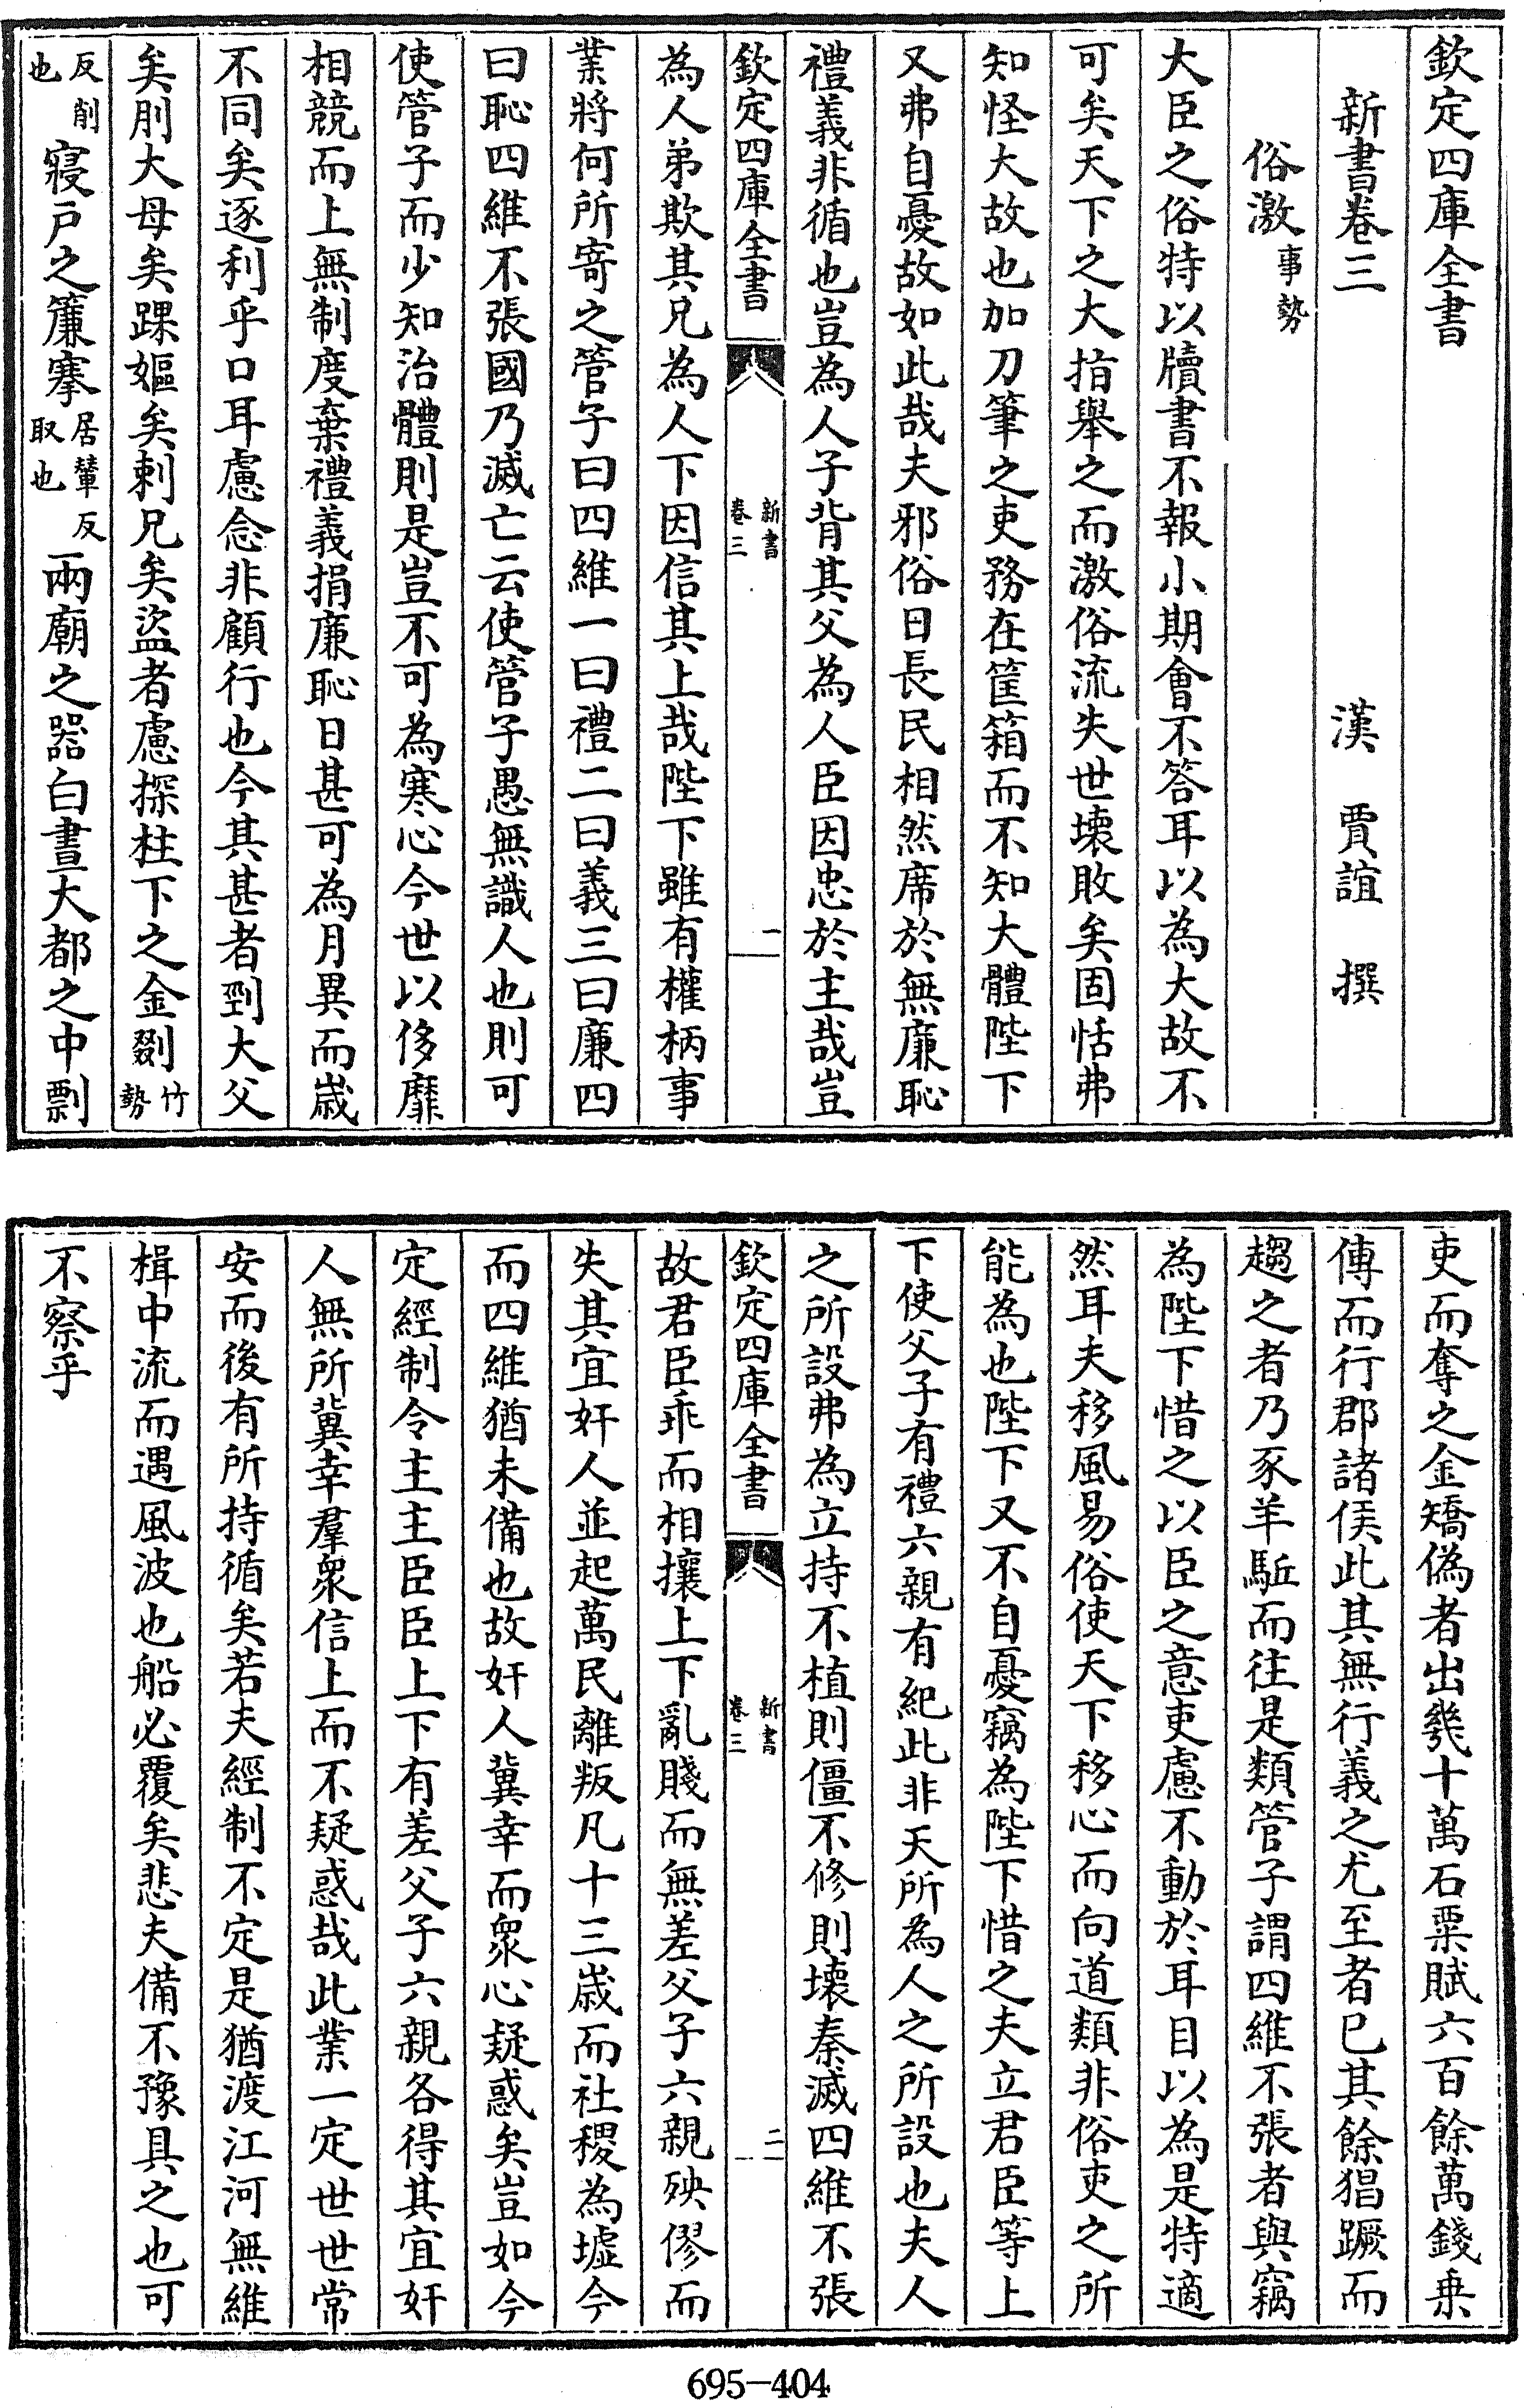 欽定四庫全書
新書卷三　漢　賈誼　撰
俗激事勢
大臣之俗特以牘書不報小期會不答耳以為大故不
可矣天下之大指舉之而激俗流失世壊敗矣固恬弗
知怪大故也加刀筆之吏務在筐箱而不知大體陛下
又弗自憂故如此哉夫邪俗日長民相然席於無廉恥
禮義非循也豈為人子背其父為人臣因忠於主哉豈
欽定四庫全書　新書卷三　一
為人弟欺其兄為人下因信其上哉陛下雖有權柄事
業將何所寄之管子曰四維一曰禮二曰義三曰廉四
曰恥四維不張國乃滅亡云使管子愚無識人也則可
使管子而少知治體則是豈不可為寒心今世以侈靡
相競而上無制度棄禮義捐廉恥日甚可為月異而歲
不同矣逐利乎口耳慮念非顧行也今其甚者剄大父
矣刖大母矣踝嫗矣刺兄矣盜者慮探柱下之金剟竹勢
反削也寢戶之簾搴居輦反取也兩廟之器白晝大都之中剽
吏而奪之金矯偽者出幾十萬石粟賦六百餘萬錢乗
傳而行郡諸侯此其無行義之尤至者已其餘猖蹶而
趨之者乃豕羊駈而往是類管子謂四維不張者與竊
為陛下惜之以臣之意吏慮不動於耳目以為是特適
然耳夫移風易俗使天下移心而向道類非俗吏之所
能為也陛下又不自憂竊為陛下惜之夫立君臣等上
下使父子有禮六親有紀此非天所為人之所設也夫人
之所設弗為立持不植則僵不修則壊秦滅四維不張
欽定四庫全書　新書卷三　二
故君臣乖而相攘上下亂賤而無差父子六親殃僇而
失其宜奸人並起萬民離叛凡十三歲而社稷為墟今
而四維猶未備也故奸人冀幸而衆心疑惑矣豈如今
定經制令主主臣臣上下有差父子六親各得其宜奸
人無所冀幸羣衆信上而不疑惑哉此業一定世世常
安而後有所持循矣若夫經制不定是猶渡江河無維
楫中流而遇風波也船必覆矣悲夫備不豫具之也可
不察乎
695-404